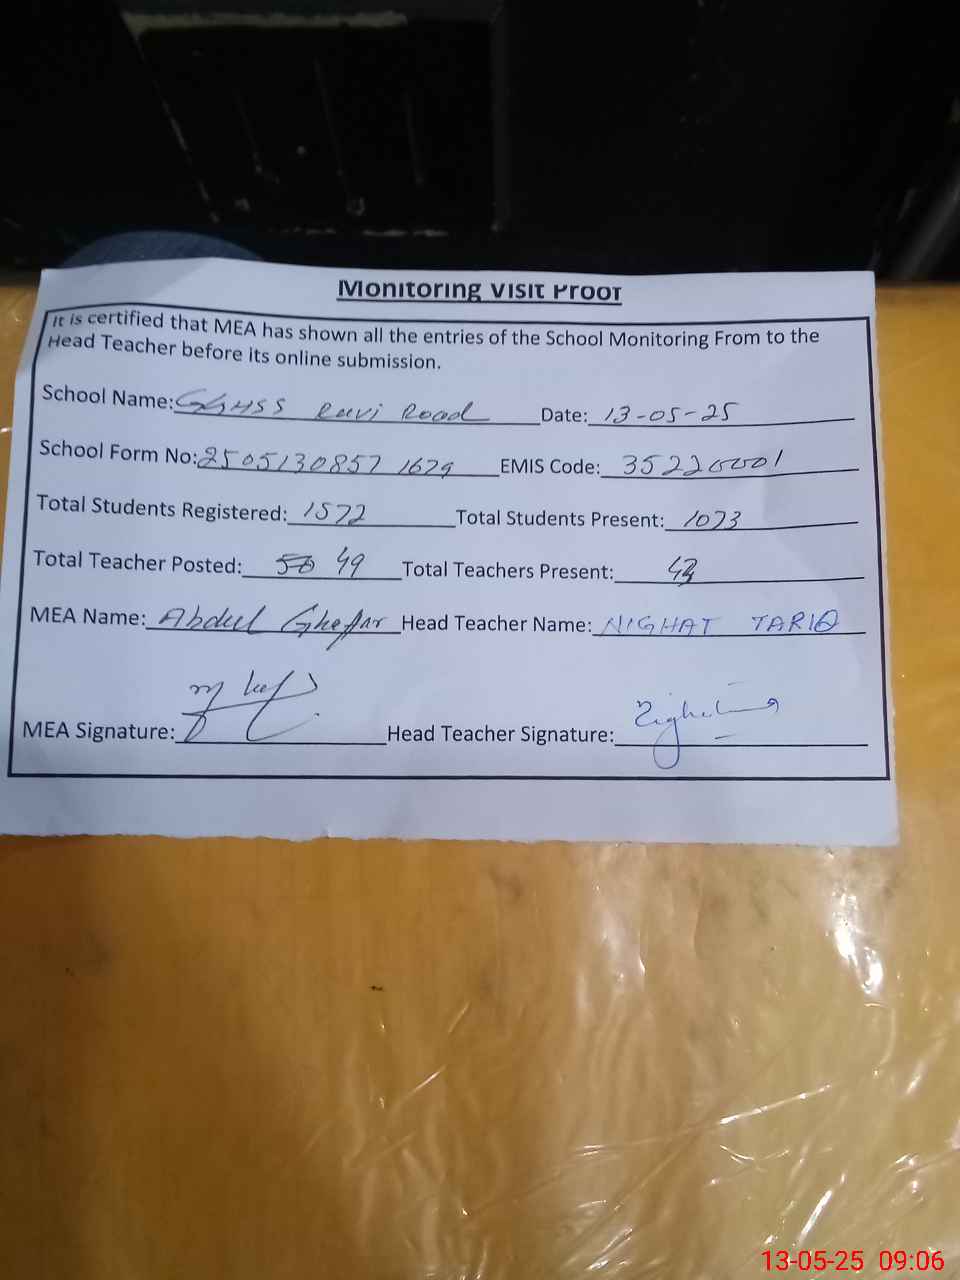 Monitoring Visit Proof
It is certified that MEA has shown all the entries of the School Monitoring From to the
Head Teacher before its online submission.
School Name: GGHSS Ravi Road Date: 13-05-25
School Form No: 25051308571679 EMIS Code: 35220001
Total Students Registered: 1572 Total Students Present: 1073
Total Teacher Posted: 50 49 Total Teachers Present:
MEA Name: Abdul Ghaffar Head Teacher Name: NIGHAT TARIQ
MEA Signature: Head Teacher Signature:
13-05-25 09:06